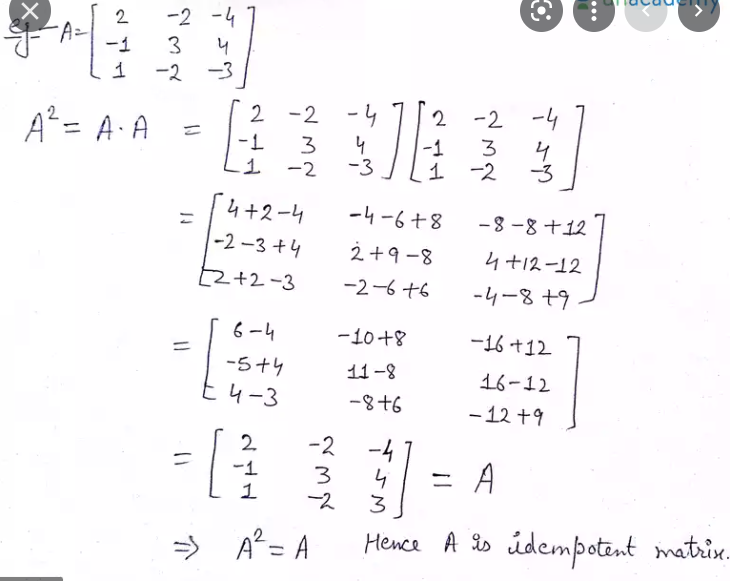 eg- A= [ 2 -2 -4
-1 3 4
1 -2 -3 ]
A² = A·A = [ 2 -2 -4 ] [ 2 -2 -4 ]
-1 3 4 -1 3 4
1 -2 -3 1 -2 -3
= [ 4+2-4 -4-6+8 -8-8+12 ]
-2-3+4 2+9-8 4+12-12
2+2-3 -2-6+6 -4-8+9
= [ 6-4 -10+8 -16+12 ]
-5+4 11-8 16-12
4-3 -8+6 -12+9
= [ 2 -2 -4 ] = A
-1 3 4
1 -2 3
⇒ A² = A Hence A is idempotent matrix.